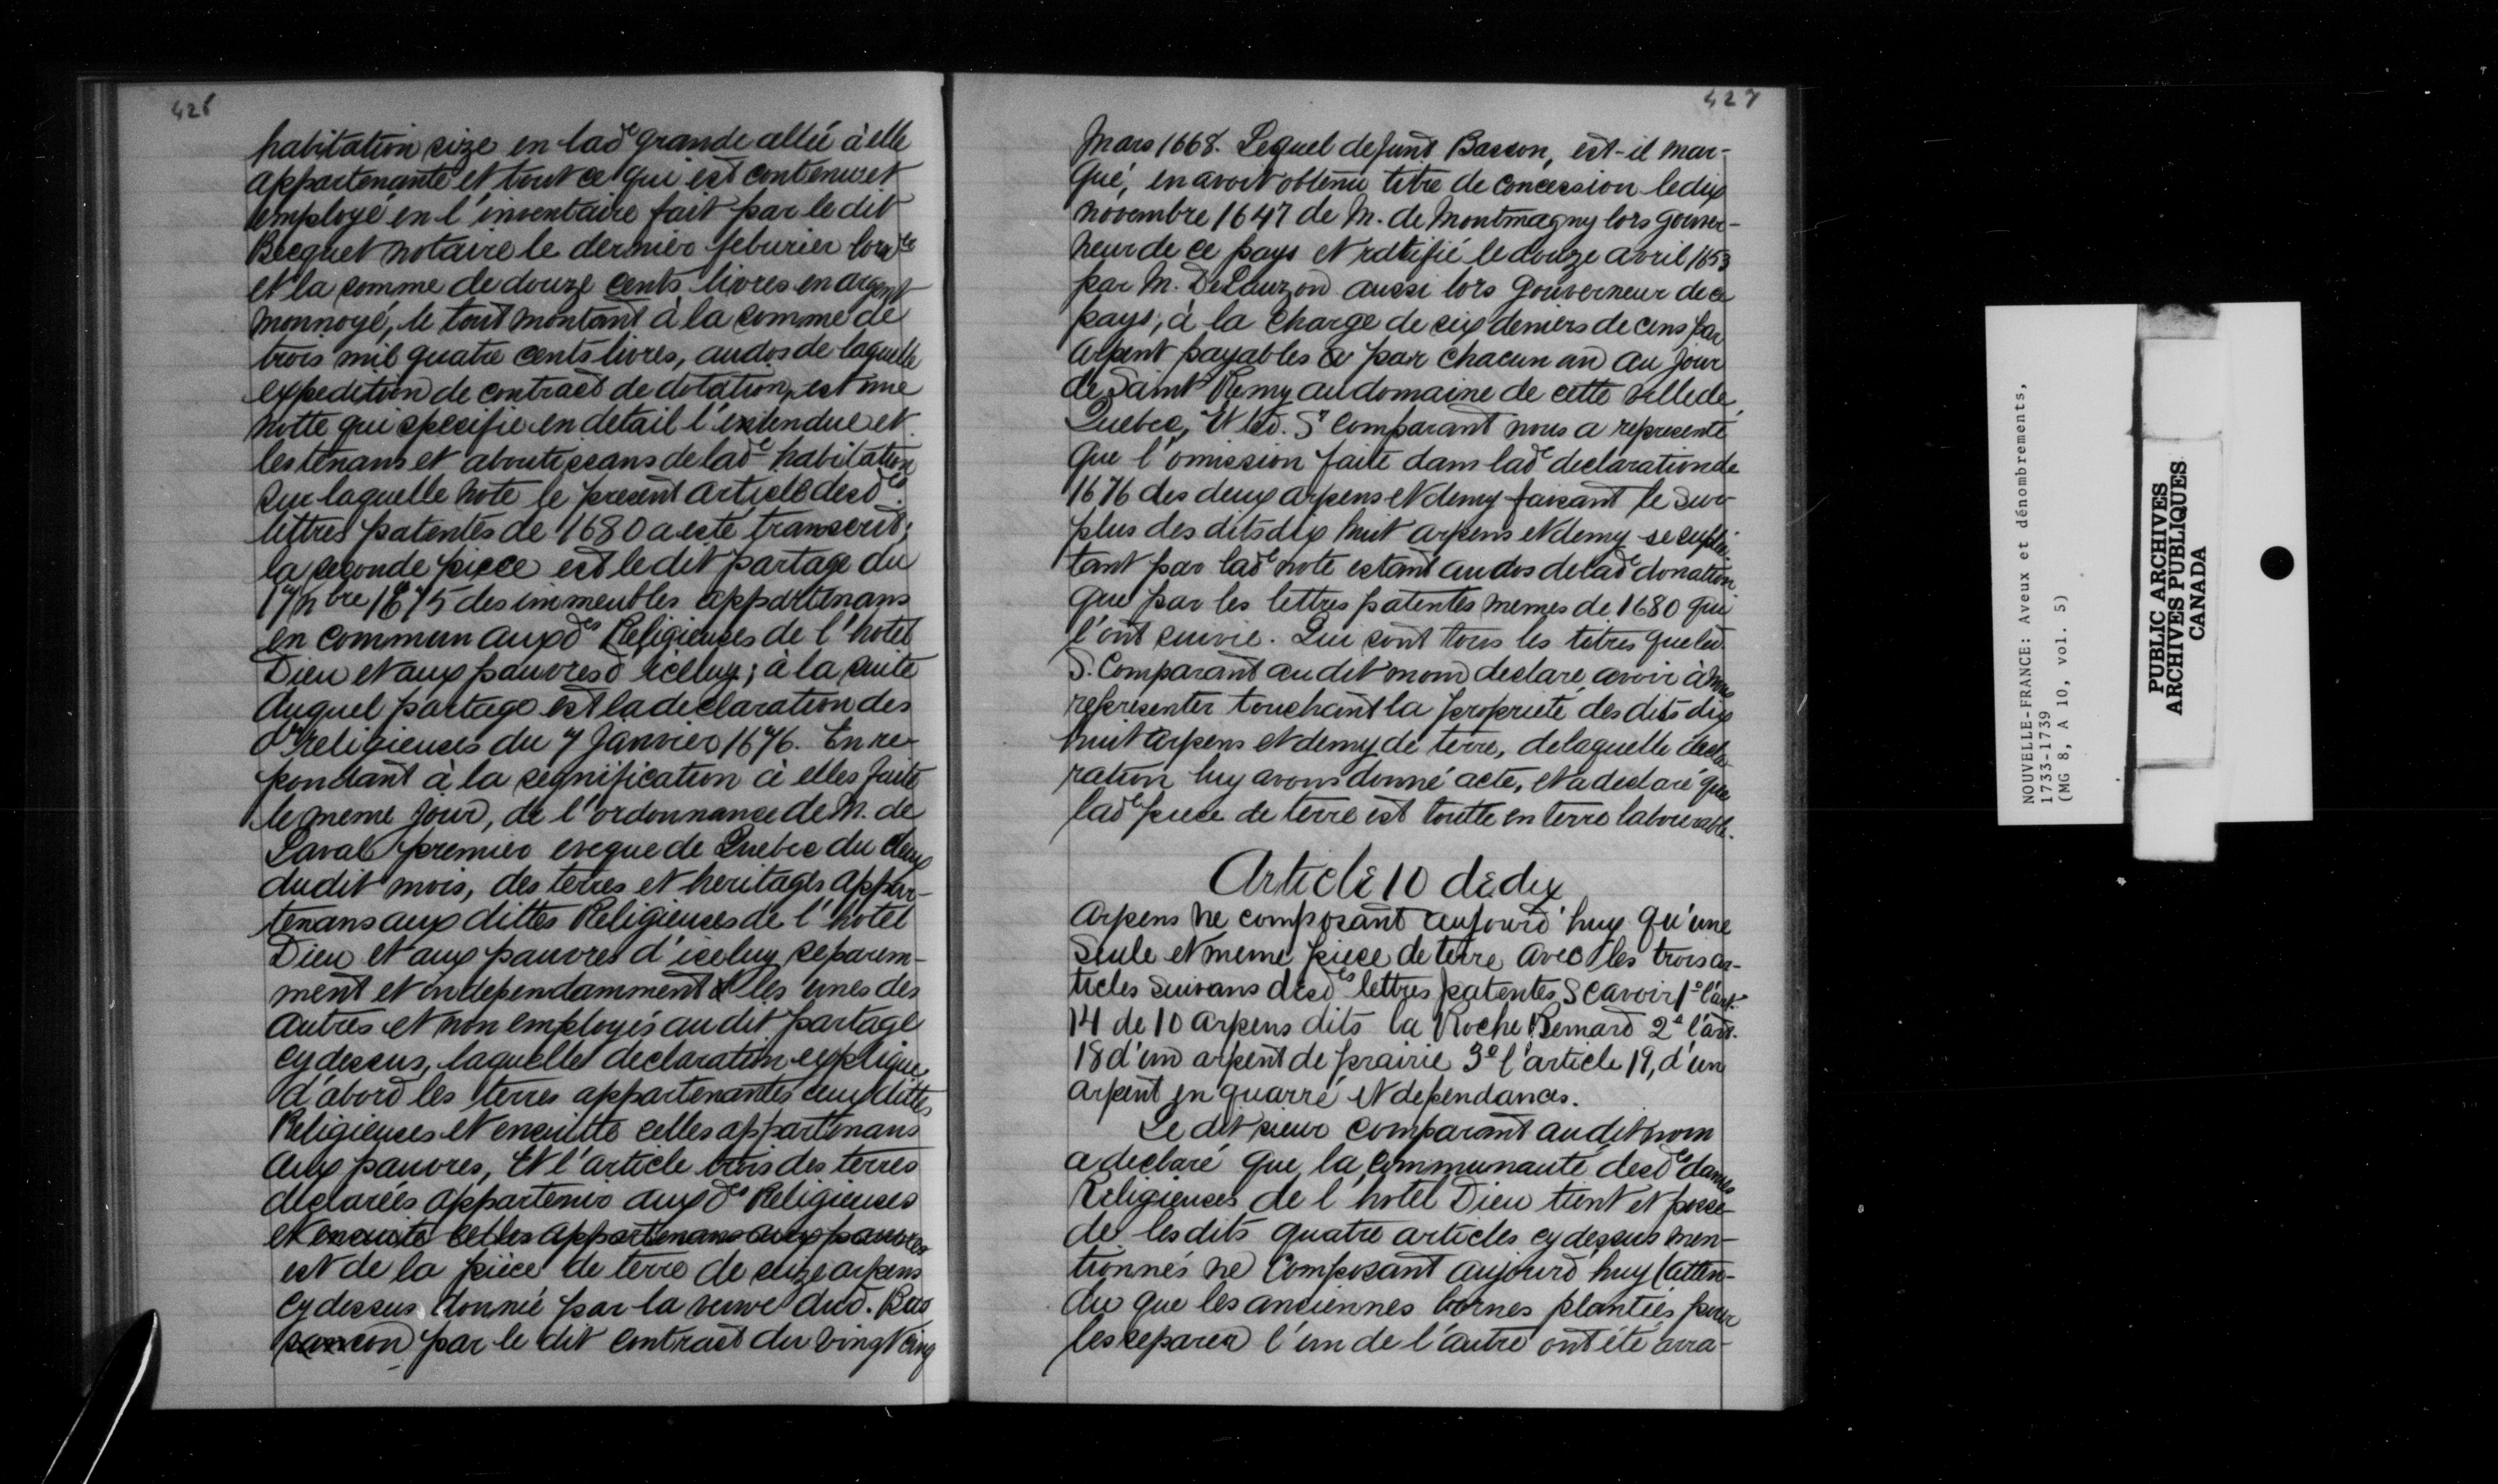 426
habitation size en lad^e grande allée à elle
appartenante et tout ce qui est contenu et
employé en l'inventaire fait par le dit
Becquet notaire le dernier feburier
et la somme de douze cents livres en argent
monnoyé, le tout montant à la somme de
trois mil quatre cents livres, au dos de laquelle
expedition de contract de dotation, est une
notte qui specifie en detail l'entendue et
les tenans et aboutissans de lad^e habitation
sur laquelle note le present article desd^es
lettres patentes de 1680 a esté transcrit;
la seconde piece est le dit partage du
17 n^bre 1675 des immeubles appartenans
en commun auxd^es Religieuses de l'hotel
Dieu et aux pauvres d'iceluy; à la suite
duquel partage est la declaration des
d^es religieuses du 7 Janvier 1676. En re-
pondant à la segnification à elles faite
le meme jour, de l'ordonnance de M. de
Laval premier eveque de Quebec du deux
dudit mois, des terres et heritages appar-
tenans aux dittes Religieuses de l'hotel
Dieu et aux pauvres d'iceluy separem-
ment et independamment les unes des
autres et non employés au dit partage
cy dessus, laquelle declaration explique
d'abord les terres appartenantes aux dittes
Religieuses et ensuitte celles appartenans
aux pauvres, et l'article trois des terres
declarées appartenir aux d^es Religieuses
et ensuite celles appartenans aux pauvres
est de la pièce de terre de seize arpens
cy dessus donnée par la veuve dud. Bas
con par le dit contract du vingt cinq
427
Mars 1668. Lequel defunt Bascon, est-il mar-
qué, en avoit obtenu titre de concession le dix
novembre 1647 de M. de Montmagny lors gouver-
neur de ce pays et ratifié le douze avril 1653
par M. DeLauzon aussi lors gouverneur de ce
pays, à la charge de six deniers de cens par
arpent payables par chacun an au jour
de Saint Remy au domaine de cette ville de
Quebec, et led. S^r Comparant nous a representé
que l'omission faite dans lad^e declaration de
1676 des deux arpens et demy faisant le sur-
plus des dits dix huit arpens et demy se
tant par lad^e note estant au dos de lad^e donation
que par les lettres patentes memes de 1680 qui
l'ont suivie. Qui sont tous les titres que led.
S. Comparant au dit nom declare avoir à nous
representer touchant la proprieté des dits dix
huit arpens et demy de terre, de laquelle decla
ration luy avons donné acte, et a declaré que
lad^e piece de terre est toutte en terre labourable.
Article 10 de dix
Arpens ne composant aujourd'huy qu'une
seule et meme piece de terre avec les trois ar-
ticles suivans desd^es lettres patentes Scavoir 1° l'art.
14 de 10 arpens dits la Roche Bernard 2° l'art.
18 d'un arpent de prairie 3° l'article 19, d'un
arpent en quarré et dependances.
Le dit sieur comparant au dit nom
a declaré que la communauté desd^es dames
Religieuses de l'hotel Dieu tient et posse-
de les dits quatre articles cy dessus men-
tionnés ne composant aujourd'huy (atten-
du que les anciennes bornes plantées pour
les separer l'un de l'autre ont été arra-
NOUVELLE-FRANCE: Aveux et dénombrements,
1733-1739
(MG 8, A 10, vol. 5)
PUBLIC ARCHIVES
ARCHIVES PUBLIQUES
CANADA